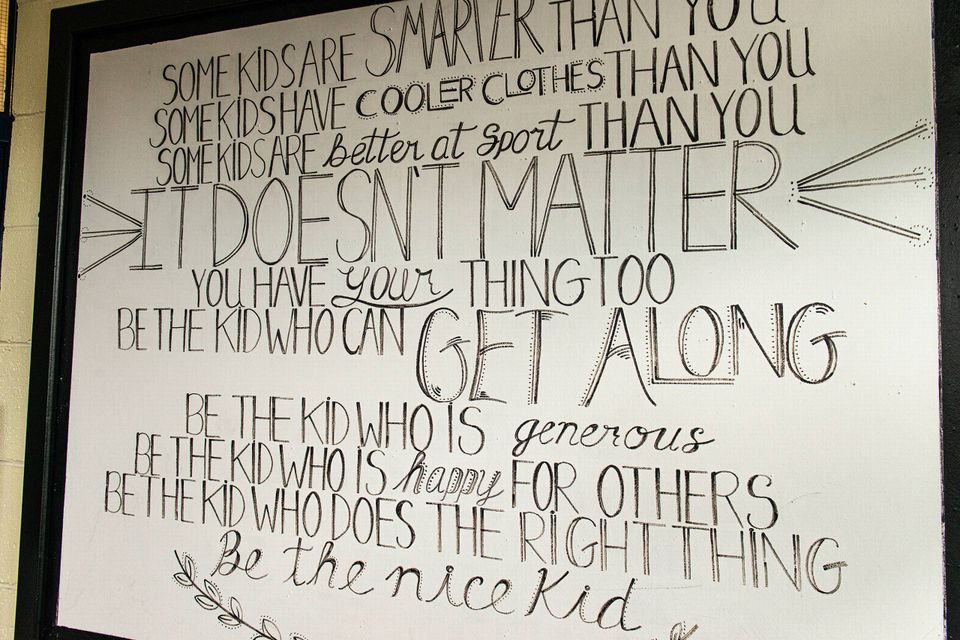 SOME KIDS ARE SMARTER THAN YOU
SOME KIDS HAVE COOLER CLOTHES THAN YOU
SOME KIDS ARE better at sport THAN YOU
IT DOESN'T MATTER
YOU HAVE your THING TOO
BE THE KID WHO CAN GET ALONG
BE THE KID WHO IS generous
BE THE KID WHO IS happy FOR OTHERS
BE THE KID WHO DOES THE RIGHT THING
Be the nice Kid